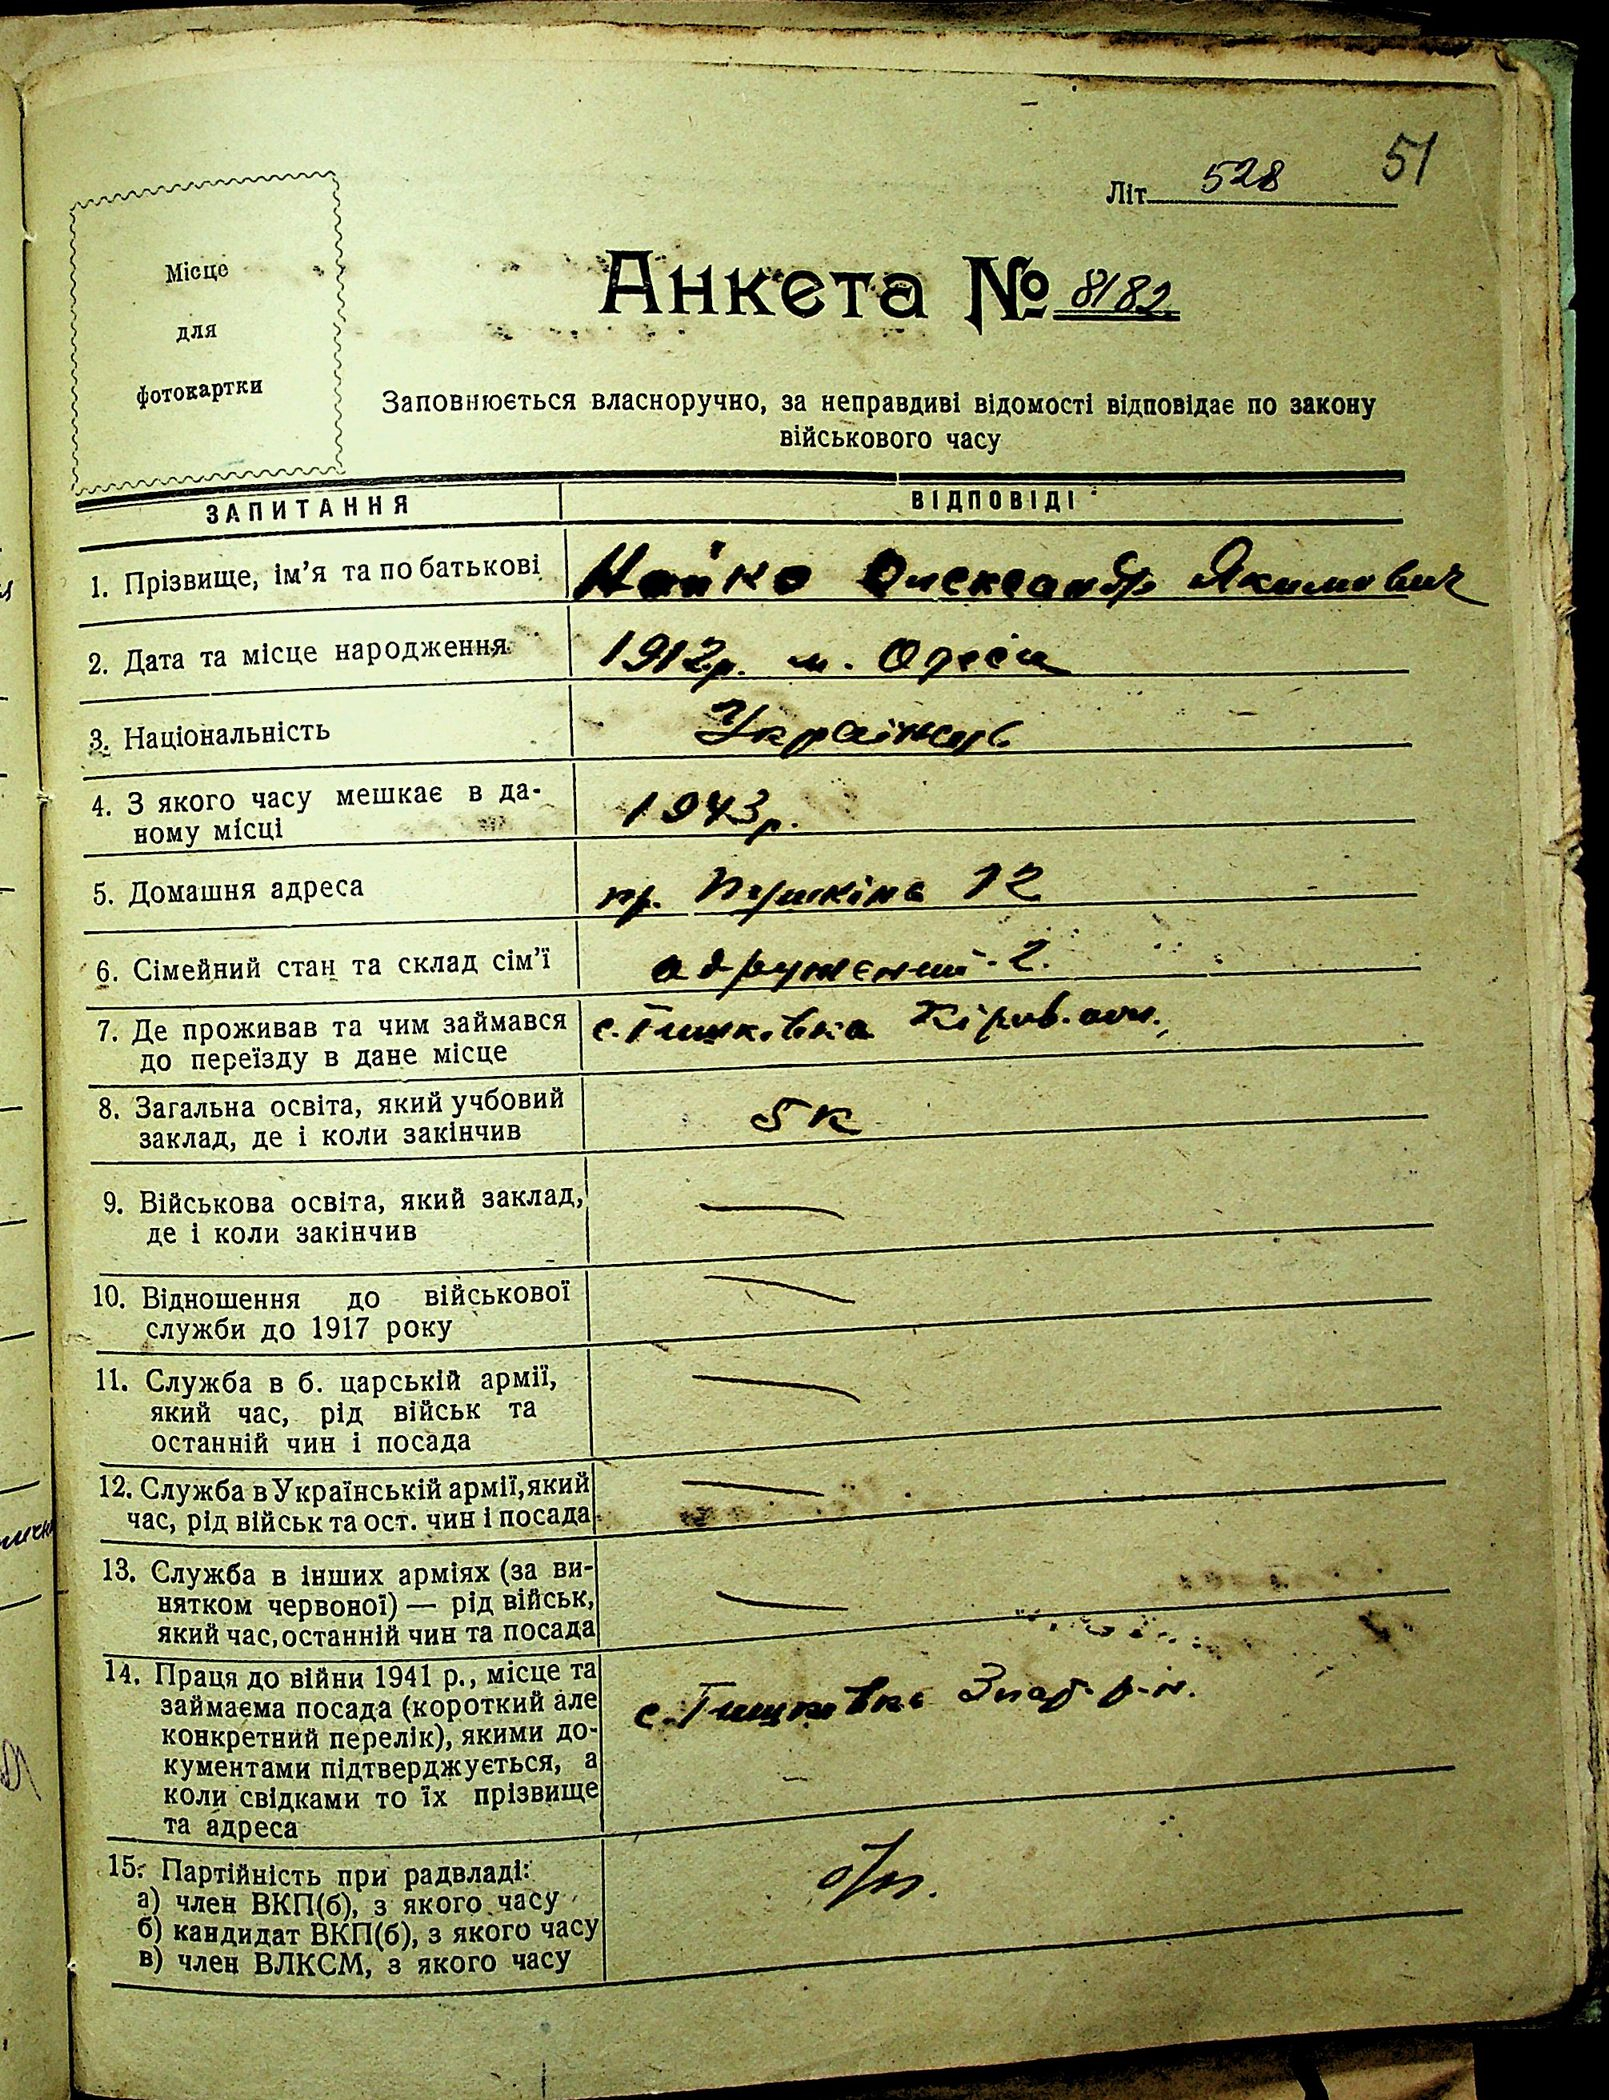 51
Літ 528
Місце
для
фотокартки
Анкета № 8182
Заповнюється власноручно, за неправдиві відомості відповідає по закону
військового часу
ЗАПИТАННЯ ВІДПОВІДІ
1. Прізвище, ім'я та по батькові Найко Олександр Якимович
2. Дата та місце народження 1912р. м. Одеса
3. Національність Українець
4. З якого часу мешкає в да-
ному місці 1943р.
5. Домашня адреса пр. Пушкіна 12
6. Сімейний стан та склад сім'ї одружений - 2.
7. Де проживав та чим займався с. Тишковка Кіров. обл.
до переїзду в дане місце
8. Загальна освіта, який учбовий 5 к
заклад, де і коли закінчив
9. Військова освіта, який заклад, —
де і коли закінчив
10. Відношення до військової —
служби до 1917 року
11. Служба в б. царській армії, —
який час, рід військ та
останній чин і посада
12. Служба в Українській армії, який —
час, рід військ та ост. чин і посада
13. Служба в інших арміях (за ви-
нятком червоної) — рід військ, —
який час, останній чин та посада
14. Праця до війни 1941 р., місце та
займаєма посада (короткий але с. Тишковка р-н.
конкретний перелік), якими до-
кументами підтверджується, а
коли свідками то їх прізвище
та адреса
15. Партійність при радвладі:
а) член ВКП(б), з якого часу б/п.
б) кандидат ВКП(б), з якого часу
в) член ВЛКСМ, з якого часу